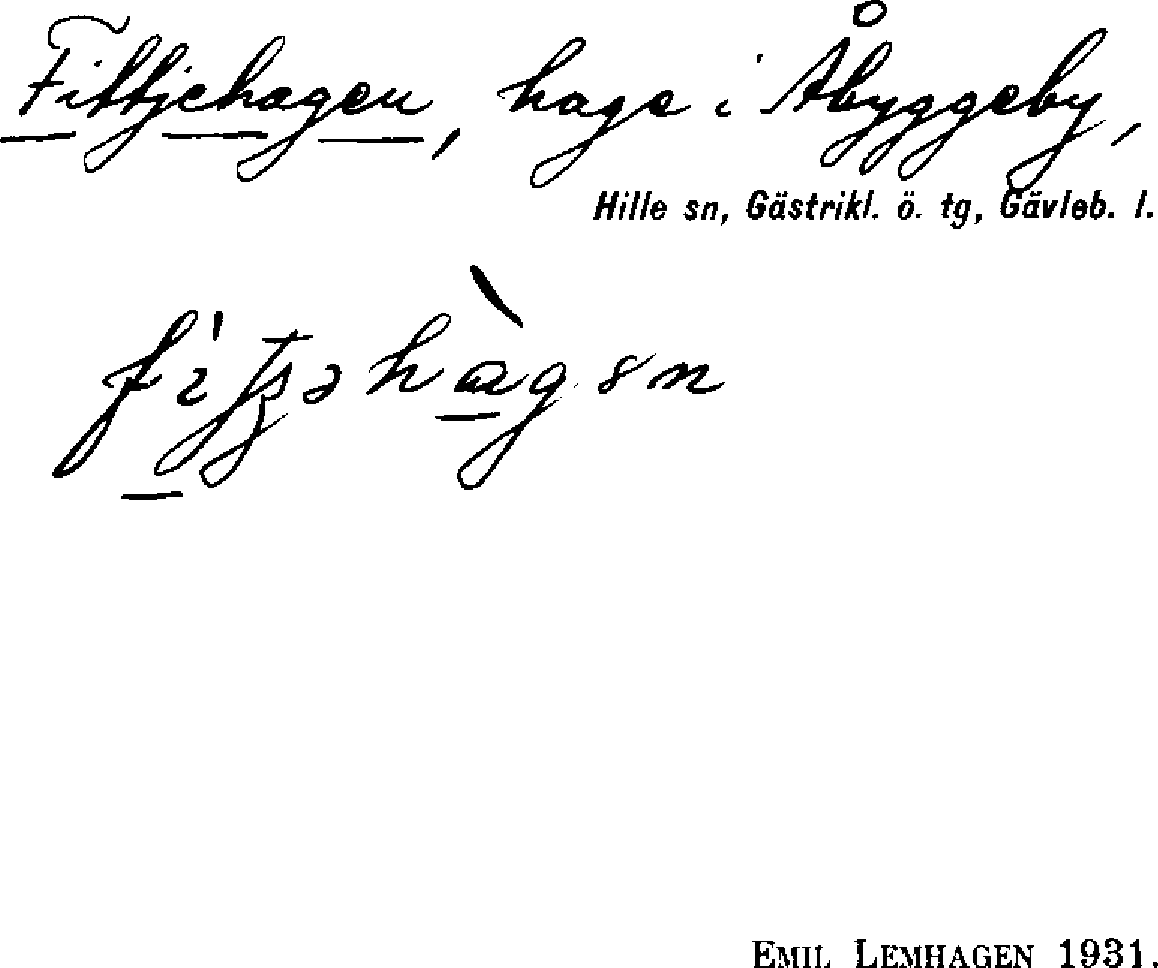 Fittjehagen, hage i Åbyggeby,
Hille sn, Gästrikl. ö. tg, Gävleb. l.
EMIL LEMHAGEN 1931.